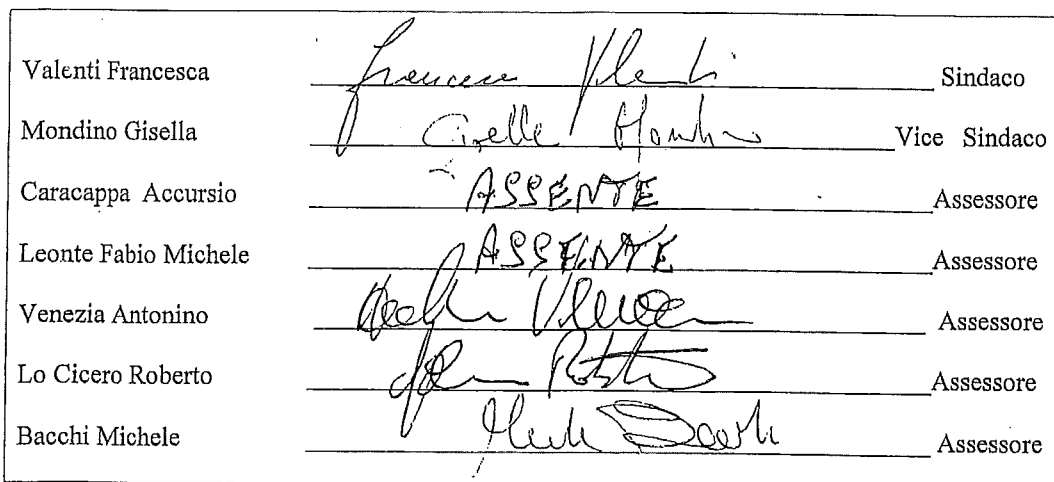 Valenti Francesca Francesca Valenti Sindaco
Mondino Gisella Gisella Mondino Vice Sindaco
Caracappa Accursio ASSENTE Assessore
Leonte Fabio Michele ASSENTE Assessore
Venezia Antonino Assessore
Lo Cicero Roberto Assessore
Bacchi Michele Assessore